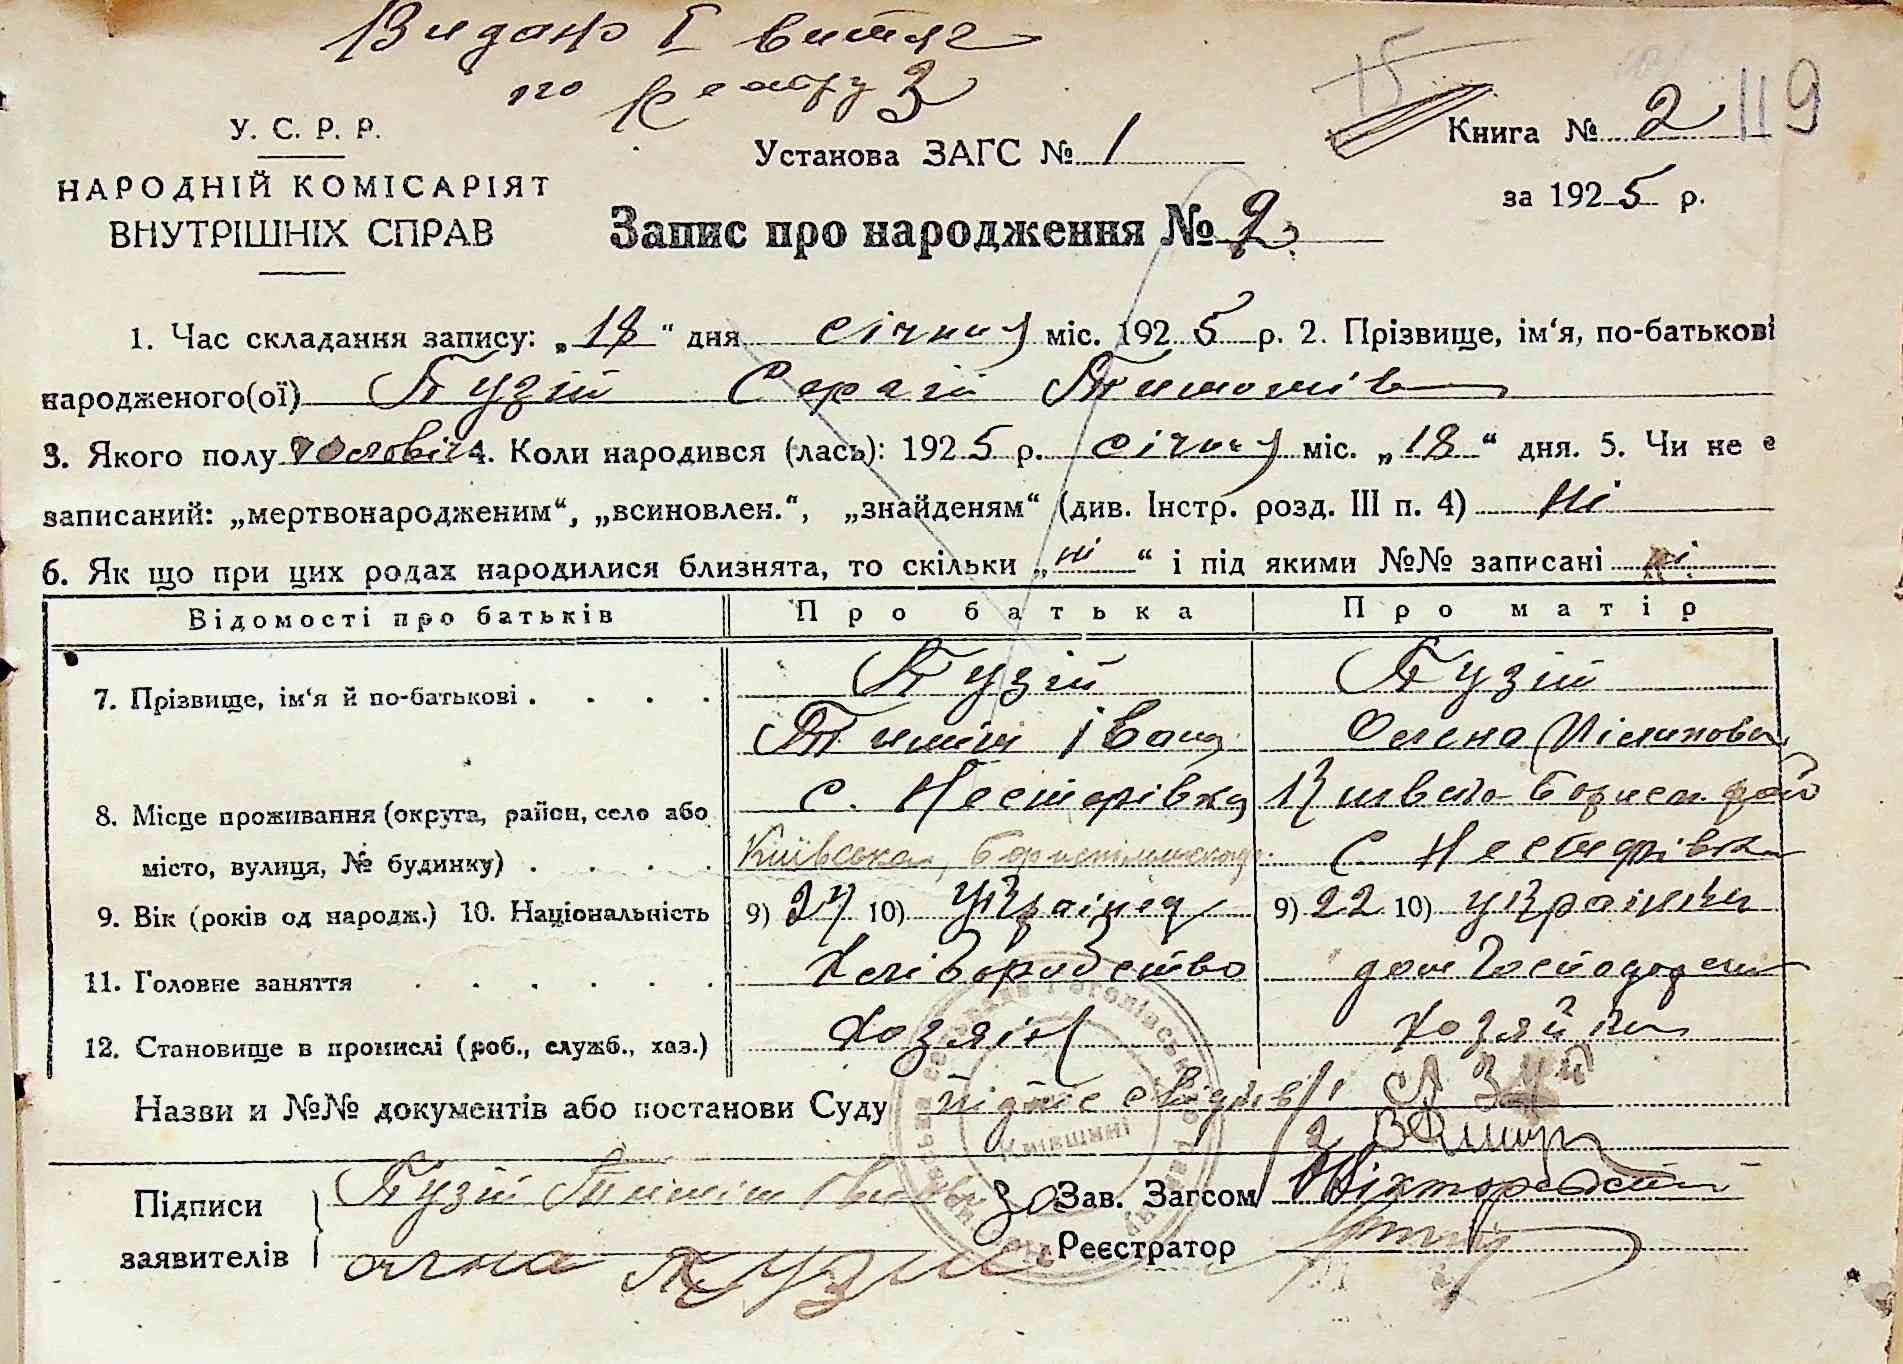 Видано I витяг
по реєстру 3
У. С. Р. Р.
НАРОДНІЙ КОМІСАРІЯТ
ВНУТРІШНІХ СПРАВ
Установа ЗАГС № 1
Книга № 2 119
за 1925 р.
Запис про народження № 2
1. Час складання запису: „18“ дня січня міс. 1925 р. 2. Прізвище, ім‘я, по-батькові
народженого(ої) Пузій Сергій Тимошів
3. Якого полу чоловіч 4. Коли народився (лась): 1925 р. січня міс. „18“ дня. 5. Чи не є
записаний: „мертвонародженим“, „всиновлен.“, „знайденям“ (див. Інстр. розд. III п. 4) ні
6. Як що при цих родах народилися близнята, то скільки „ні“ і під якими №№ записані ні
Відомості про батьків Про батька Про матір
7. Прізвище, ім‘я й по-батькові . . . . Пузій Пузій
Іван Олена
8. Місце проживання (округа, район, село або с. Нестерівка
місто, вулиця, № будинку) . . . . Київська, с. Нестерівка
9. Вік (років од народж.) 10. Національність 9) 24 10) українец 9) 22 10) українка
11. Головне заняття . . . . . . Хліборобство дом господари
12. Становище в промислі (роб., служб., хаз.) хозяін хозяйка
Назви и №№ документів або постанови Суду
Підписи Пузій за Зав. Загсом
заявителів Реєстратор
Київщині